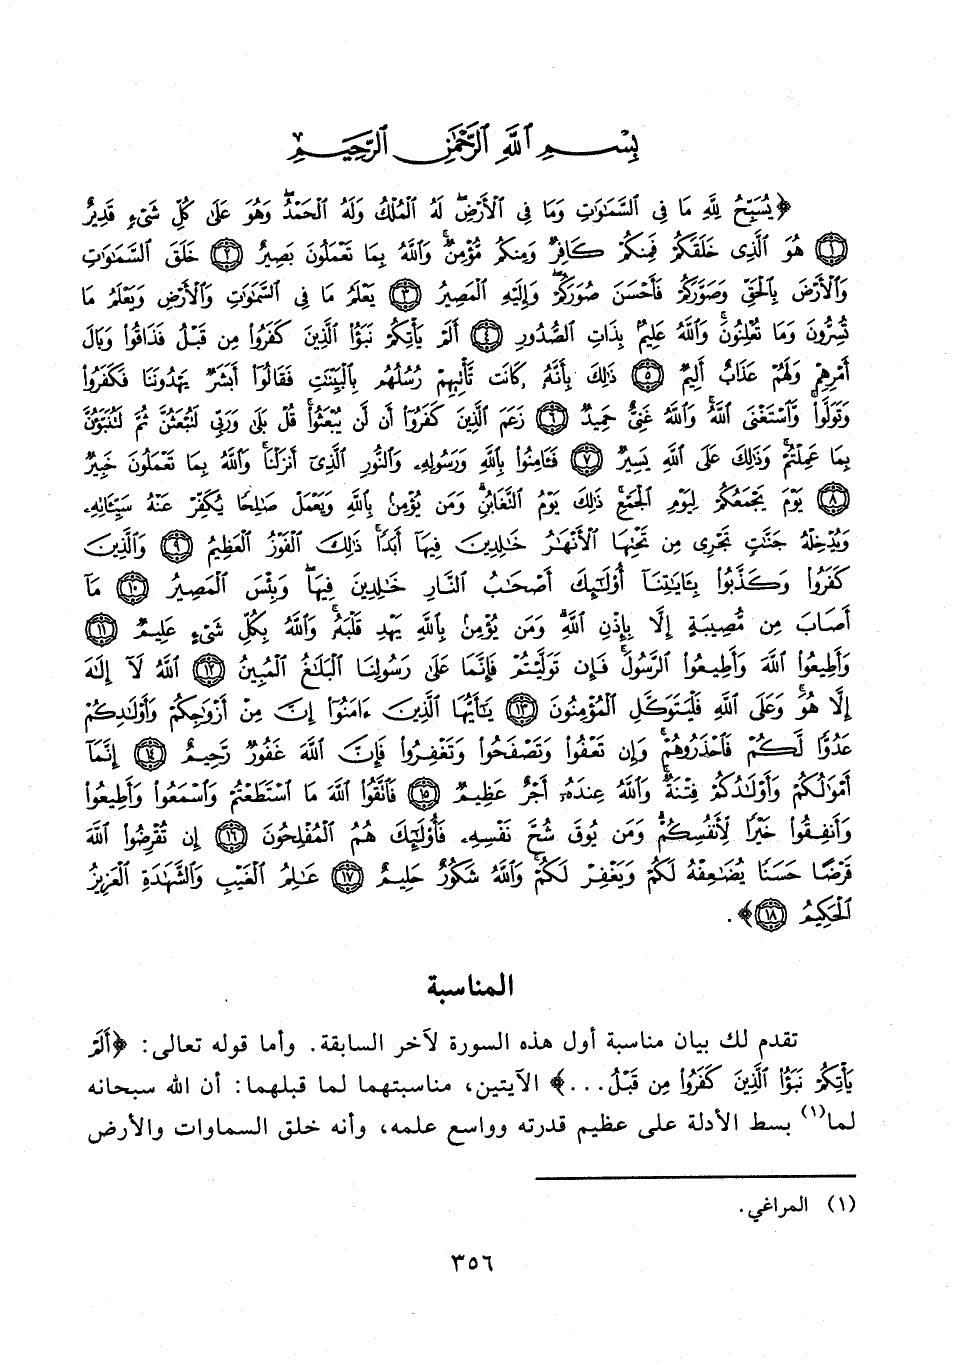 بِسْمِ ٱللَّهِ ٱلرَّحْمَٰنِ ٱلرَّحِيمِ
﴿يُسَبِّحُ لِلَّهِ مَا فِى ٱلسَّمَٰوَٰتِ وَمَا فِى ٱلْأَرْضِۖ لَهُ ٱلْمُلْكُ وَلَهُ ٱلْحَمْدُۖ وَهُوَ عَلَىٰ كُلِّ شَىْءٍ قَدِيرٌ
۝١ هُوَ ٱلَّذِى خَلَقَكُمْ فَمِنكُمْ كَافِرٌ وَمِنكُم مُّؤْمِنٌۚ وَٱللَّهُ بِمَا تَعْمَلُونَ بَصِيرٌ ۝٢ خَلَقَ ٱلسَّمَٰوَٰتِ
وَٱلْأَرْضَ بِٱلْحَقِّ وَصَوَّرَكُمْ فَأَحْسَنَ صُوَرَكُمْۖ وَإِلَيْهِ ٱلْمَصِيرُ ۝٣ يَعْلَمُ مَا فِى ٱلسَّمَٰوَٰتِ وَٱلْأَرْضِ وَيَعْلَمُ مَا
تُسِرُّونَ وَمَا تُعْلِنُونَۚ وَٱللَّهُ عَلِيمٌۢ بِذَاتِ ٱلصُّدُورِ ۝٤ أَلَمْ يَأْتِكُمْ نَبَؤُا۟ ٱلَّذِينَ كَفَرُوا۟ مِن قَبْلُ فَذَاقُوا۟ وَبَالَ
أَمْرِهِمْ وَلَهُمْ عَذَابٌ أَلِيمٌ ۝٥ ذَٰلِكَ بِأَنَّهُۥ كَانَت تَّأْتِيهِمْ رُسُلُهُم بِٱلْبَيِّنَٰتِ فَقَالُوٓا۟ أَبَشَرٌ يَهْدُونَنَا فَكَفَرُوا۟
وَتَوَلَّوا۟ۚ وَّٱسْتَغْنَى ٱللَّهُۚ وَٱللَّهُ غَنِىٌّ حَمِيدٌ ۝٦ زَعَمَ ٱلَّذِينَ كَفَرُوٓا۟ أَن لَّن يُبْعَثُوا۟ۚ قُلْ بَلَىٰ وَرَبِّى لَتُبْعَثُنَّ ثُمَّ لَتُنَبَّؤُنَّ
بِمَا عَمِلْتُمْۚ وَذَٰلِكَ عَلَى ٱللَّهِ يَسِيرٌ ۝٧ فَـَٔامِنُوا۟ بِٱللَّهِ وَرَسُولِهِۦ وَٱلنُّورِ ٱلَّذِىٓ أَنزَلْنَاۚ وَٱللَّهُ بِمَا تَعْمَلُونَ خَبِيرٌ
۝٨ يَوْمَ يَجْمَعُكُمْ لِيَوْمِ ٱلْجَمْعِۖ ذَٰلِكَ يَوْمُ ٱلتَّغَابُنِۗ وَمَن يُؤْمِنۢ بِٱللَّهِ وَيَعْمَلْ صَٰلِحًا يُكَفِّرْ عَنْهُ سَيِّـَٔاتِهِۦ
وَيُدْخِلْهُ جَنَّٰتٍ تَجْرِى مِن تَحْتِهَا ٱلْأَنْهَٰرُ خَٰلِدِينَ فِيهَآ أَبَدًاۚ ذَٰلِكَ ٱلْفَوْزُ ٱلْعَظِيمُ ۝٩ وَٱلَّذِينَ
كَفَرُوا۟ وَكَذَّبُوا۟ بِـَٔايَٰتِنَآ أُو۟لَٰٓئِكَ أَصْحَٰبُ ٱلنَّارِ خَٰلِدِينَ فِيهَاۖ وَبِئْسَ ٱلْمَصِيرُ ۝١٠ مَآ
أَصَابَ مِن مُّصِيبَةٍ إِلَّا بِإِذْنِ ٱللَّهِۗ وَمَن يُؤْمِنۢ بِٱللَّهِ يَهْدِ قَلْبَهُۥۚ وَٱللَّهُ بِكُلِّ شَىْءٍ عَلِيمٌ ۝١١
وَأَطِيعُوا۟ ٱللَّهَ وَأَطِيعُوا۟ ٱلرَّسُولَۚ فَإِن تَوَلَّيْتُمْ فَإِنَّمَا عَلَىٰ رَسُولِنَا ٱلْبَلَٰغُ ٱلْمُبِينُ ۝١٢ ٱللَّهُ لَآ إِلَٰهَ
إِلَّا هُوَۚ وَعَلَى ٱللَّهِ فَلْيَتَوَكَّلِ ٱلْمُؤْمِنُونَ ۝١٣ يَٰٓأَيُّهَا ٱلَّذِينَ ءَامَنُوٓا۟ إِنَّ مِنْ أَزْوَٰجِكُمْ وَأَوْلَٰدِكُمْ
عَدُوًّا لَّكُمْ فَٱحْذَرُوهُمْۚ وَإِن تَعْفُوا۟ وَتَصْفَحُوا۟ وَتَغْفِرُوا۟ فَإِنَّ ٱللَّهَ غَفُورٌ رَّحِيمٌ ۝١٤ إِنَّمَآ
أَمْوَٰلُكُمْ وَأَوْلَٰدُكُمْ فِتْنَةٌۚ وَٱللَّهُ عِندَهُۥٓ أَجْرٌ عَظِيمٌ ۝١٥ فَٱتَّقُوا۟ ٱللَّهَ مَا ٱسْتَطَعْتُمْ وَٱسْمَعُوا۟ وَأَطِيعُوا۟
وَأَنفِقُوا۟ خَيْرًا لِّأَنفُسِكُمْۗ وَمَن يُوقَ شُحَّ نَفْسِهِۦ فَأُو۟لَٰٓئِكَ هُمُ ٱلْمُفْلِحُونَ ۝١٦ إِن تُقْرِضُوا۟ ٱللَّهَ
قَرْضًا حَسَنًا يُضَٰعِفْهُ لَكُمْ وَيَغْفِرْ لَكُمْۚ وَٱللَّهُ شَكُورٌ حَلِيمٌ ۝١٧ عَٰلِمُ ٱلْغَيْبِ وَٱلشَّهَٰدَةِ ٱلْعَزِيزُ
ٱلْحَكِيمُ ۝١٨﴾.
المناسبة
تقدم لك بيان مناسبة أول هذه السورة لآخر السابقة. وأما قوله تعالى: ﴿أَلَمْ
يَأْتِكُمْ نَبَؤُا۟ ٱلَّذِينَ كَفَرُوا۟ مِن قَبْلُ...﴾ الآيتين، مناسبتهما لما قبلهما: أن الله سبحانه
لما(١) بسط الأدلة على عظيم قدرته وواسع علمه، وأنه خلق السماوات والأرض
(١) المراغي.
٣٥٦